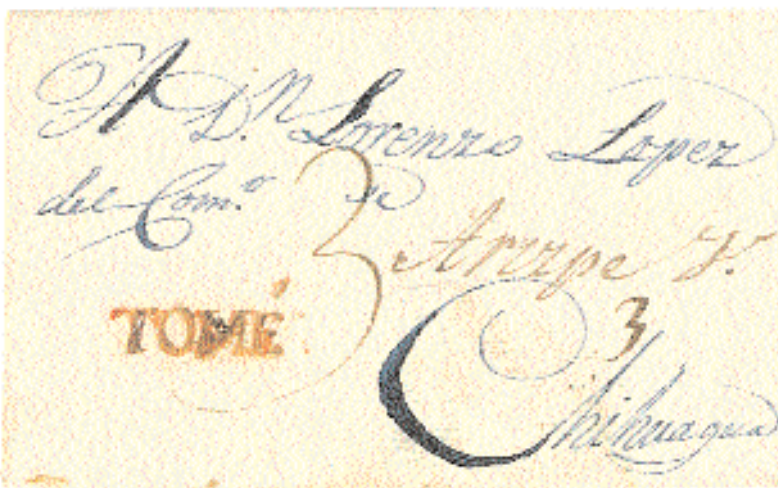 A D.n Lorenzo Lopez
del Com.o de
3 Arizpe
TOMÉ
3
Chihuagua